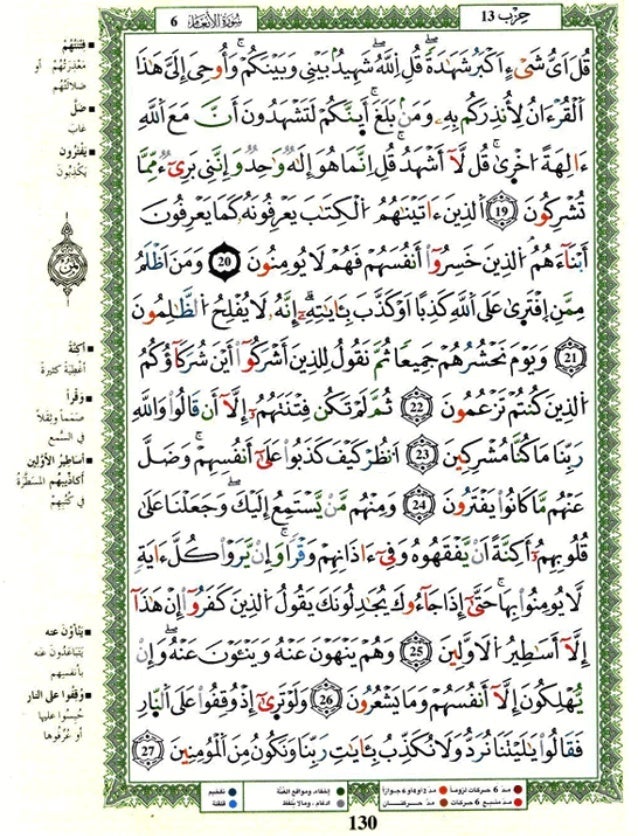 حِزْب 13
سُورَةُ الأَنْعَامِ 6
قُلَ اَيُّ شَيْءٍ اَكْبَرُ شَهَٰدَةٗ قُلِ اِ۬للَّهُ شَهِيدُۢ بَيْنِي وَبَيْنَكُمْ وَأُوحِيَ إِلَيَّ هَٰذَا
اَ۬لْقُرْءَانُ لِأُنذِرَكُم بِهِۦ وَمَنۢ بَلَغَ أَئِنَّكُمْ لَتَشْهَدُونَ أَنَّ مَعَ اَ۬للَّهِ
ءَالِهَةً اُخْر۪يٰ قُل لَّآ أَشْهَدُ قُلِ اِنَّمَا هُوَ إِلَٰهٞ وَٰحِدٞ وَإِنَّنِي بَرِيٓءٞ مِّمَّا
تُشْرِكُونَ 19 اَ۬لذِينَ ءَاتَيْنَٰهُمُ اُ۬لْكِتَٰبَ يَعْرِفُونَهُۥ كَمَا يَعْرِفُونَ
أَبْنَآءَهُمُ اُ۬لذِينَ خَسِرُوٓاْ أَنفُسَهُمْ فَهُمْ لَا يُومِنُونَ 20 وَمَنَ اَظْلَمُ
مِمَّنِ اِ۪فْتَر۪يٰ عَلَى اَ۬للَّهِ كَذِباً اَوْ كَذَّبَ بِـَٔايَٰتِهِۦٓ إِنَّهُۥ لَا يُفْلِحُ اُ۬لظَّٰلِمُونَ
21 وَيَوْمَ نَحْشُرُهُمْ جَمِيعاٗ ثُمَّ نَقُولُ لِلذِينَ أَشْرَكُوٓاْ أَيْنَ شُرَكَآؤُكُمُ
اُ۬لذِينَ كُنتُمْ تَزْعُمُونَ 22 ثُمَّ لَمْ تَكُن فِتْنَتَهُمُۥٓ إِلَّآ أَن قَالُواْ وَاللَّهِ
رَبِّنَا مَا كُنَّا مُشْرِكِينَ 23 اَ۟نظُرْ كَيْفَ كَذَبُواْ عَلَىٰٓ أَنفُسِهِمْ وَضَلَّ
عَنْهُم مَّا كَانُواْ يَفْتَرُونَ 24 وَمِنْهُم مَّنْ يَّسْتَمِعُ إِلَيْكَ وَجَعَلْنَا عَلَىٰ
قُلُوبِهِمُۥٓ أَكِنَّةً اَنْ يَّفْقَهُوهُ وَفِيٓ ءَاذَانِهِمْ وَقْراٗ وَإِنْ يَّرَوْاْ كُلَّ ءَايَةٖ
لَّا يُومِنُواْ بِهَا حَتَّىٰٓ إِذَا جَآءُوكَ يُجَٰدِلُونَكَ يَقُولُ اُ۬لذِينَ كَفَرُوٓاْ إِنْ هَٰذَآ
إِلَّآ أَسَٰطِيرُ اُ۬لَاوَّلِينَ 25 وَهُمْ يَنْهَوْنَ عَنْهُ وَيَنْـَٔوْنَ عَنْهُ وَإِنْ
يُّهْلِكُونَ إِلَّآ أَنفُسَهُمْ وَمَا يَشْعُرُونَ 26 وَلَوْ تَر۪يٰٓ إِذْ وُقِفُواْ عَلَى اَ۬لنّ۪ارِ
فَقَالُواْ يَٰلَيْتَنَا نُرَدُّ وَلَا نُكَذِّبُ بِـَٔايَٰتِ رَبِّنَا وَنَكُونُ مِنَ اَ۬لْمُومِنِينَ 27
▪ فِتْنَتُهُمْ
مَعْذِرَتُهُمْ أو
ضلالَتُهُمْ
▪ ضَلَّ
غَابَ
▪ يَفْتَرُون
يَكْذِبُونَ
ثُمُن
▪ أكِنَّةً
أغْطِيَةً كثيرةً
▪ وَقْراً
صَمَماً وثِقَلاً
في السَّمع
▪ أساطِيرُ الأوَّلين
أكاذِيبُهم المسَطَّرَةُ
في كُتُبِهِمْ
▪ يَنْأَوْن عنه
يَتَبَاعَدُونَ عنه
بأنفسِهِم
▪ وُقِفُوا على النار
حُبِسُوا عليها
أو عُرِّفُوها
مدّ 6 حركات لزوماً مدّ 2 أو 4 أو 6 جوازاً
مدّ مشبع 6 حركات مدّ حركتان
إخفاء، ومواقع الغُنَّة
ادغام، وما لا يلفظ
تفخيم
قلقلة
130